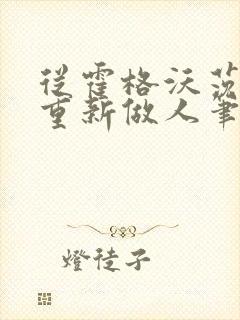 從霍格沃茨
重新做人筆
燈徒子